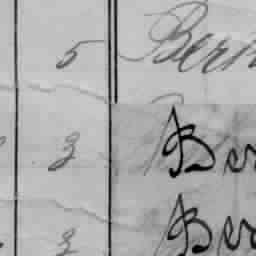 5 Bern
3 Ber
3 Ber